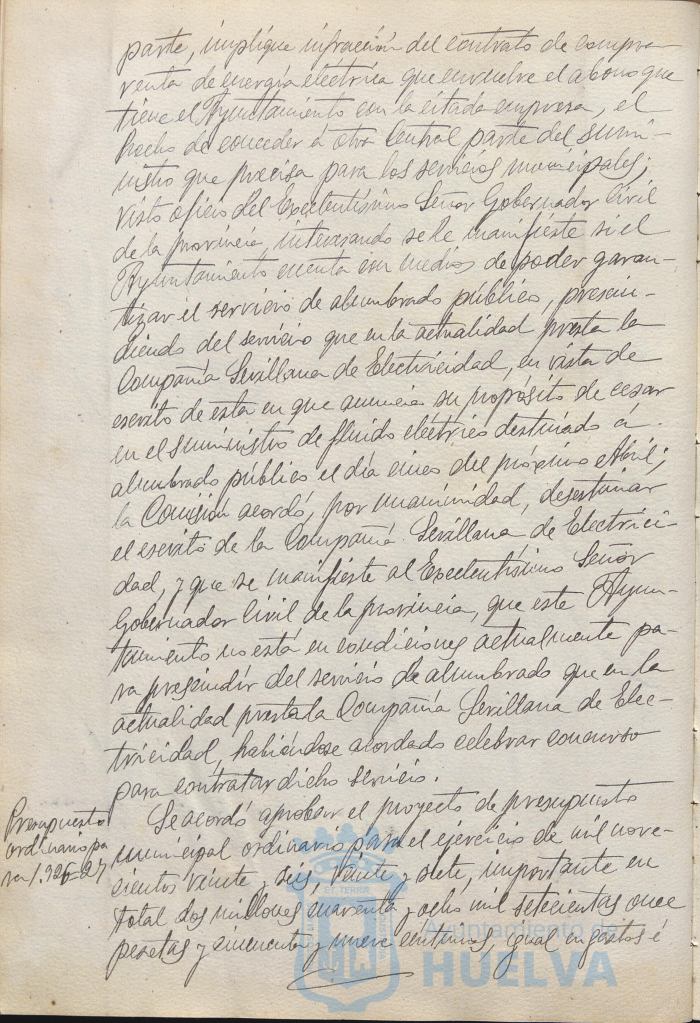 parte, implique infracción del contrato de compra-
venta de energía eléctrica que envuelve el abono que
tiene el Ayuntamiento con la citada empresa, el
hecho de conceder á otra Central parte del sumi-
nistro que precisa para los servicios municipales;
visto oficio del Excelentísimo Señor Gobernador Civil
de la provincia, interesando se le manifieste si el
Ayuntamiento cuenta con medios de poder garan-
tizar el servicio de alumbrado público, prescin-
diendo del servicio que en la actualidad presta la
Compañía Sevillana de Electricidad, en vista de
escrito de esta en que anuncia su propósito de cesar
en el suministro de fluido eléctrico destinado á
alumbrado público el día cinco del próximo Abril;
la Comisión acordó, por unanimidad, desestimar
el escrito de la Compañía Sevillana de Electrici-
dad, y que se manifieste al Excelentísimo Señor
Gobernador Civil de la provincia, que este Ayun-
tamiento no está en condiciones actualmente pa-
ra prescindir del servicio de alumbrado que en la
actualidad presta la Compañía Sevillana de Elec-
tricidad, habiéndose acordado celebrar concurso
para contratar dicho servicio.
Presupuesto
ordinario pa
ra 1.926-27
Se acordó aprobar el proyecto de presupuesto
municipal ordinario para el ejercicio de mil nove-
cientos veinte y seis, veinte y siete, importante en
total dos millones cuarenta y ocho mil setecientas once
pesetas y cincuenta y nueve centimos, igual en gastos é
Ayuntamiento de
HUELVA